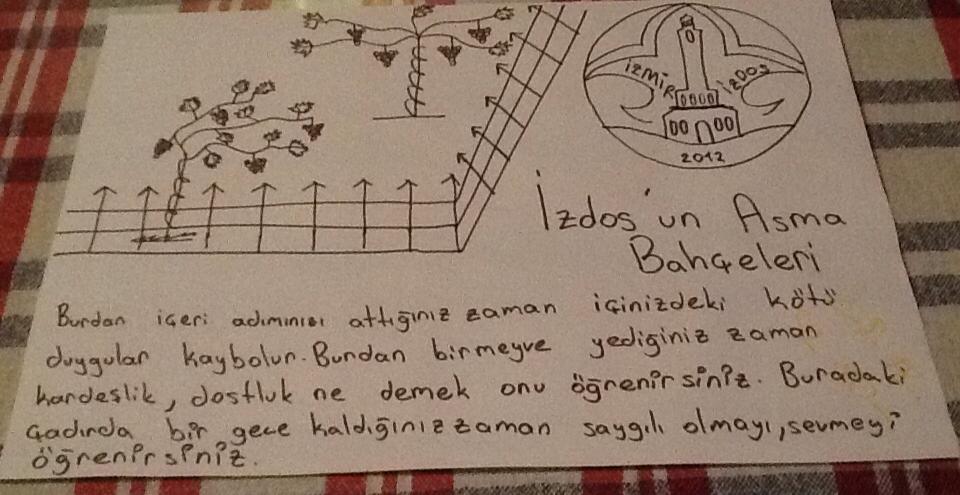 İZMİR İZDOS
2012
İzdos'un Asma
Bahçeleri
Burdan içeri adımınısı attığınız zaman içinizdeki kötü
duygular kaybolur. Bundan birmeyve yediğiniz zaman
kardeşlik, dostluk ne demek onu öğrenirsiniz. Buradaki
çadırda bir gece kaldığınız zaman saygılı olmayı, sevmeyi
öğrenirsiniz.